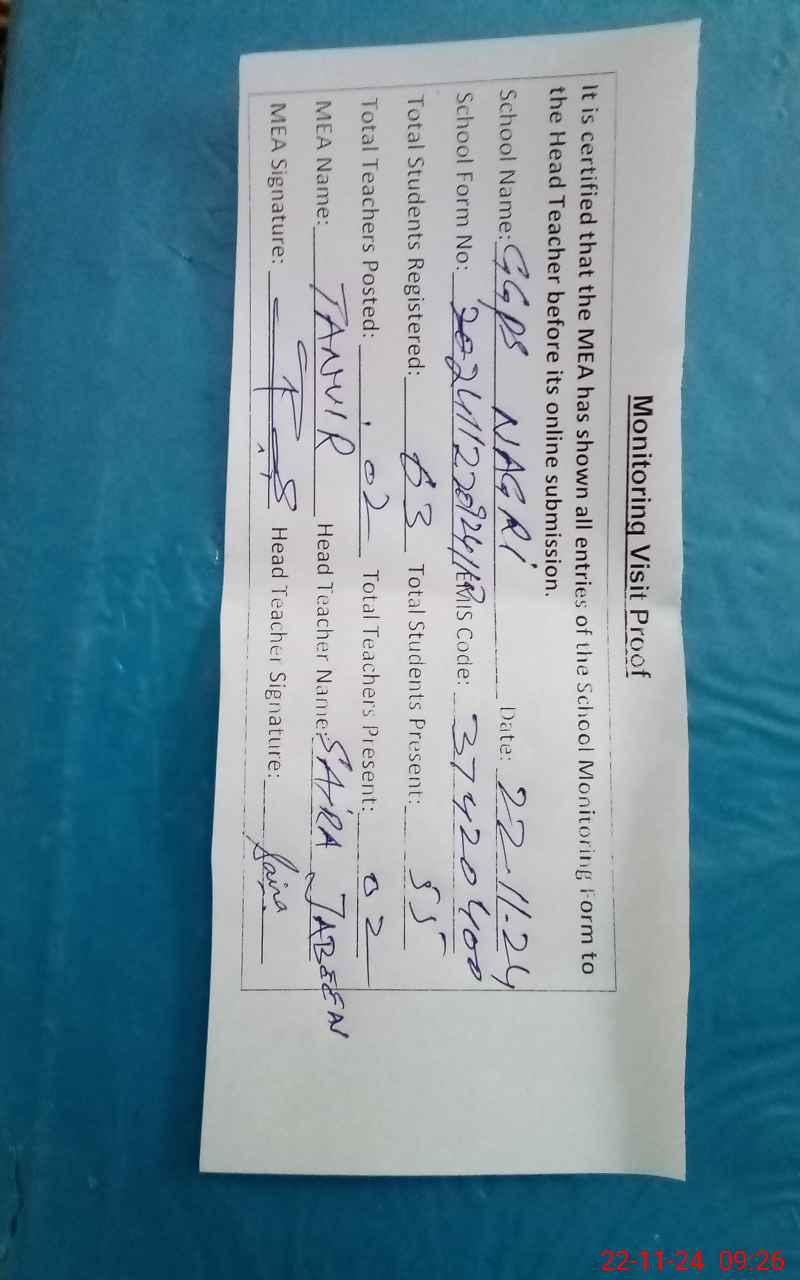 Monitoring Visit Proof
It is certified that the MEA has shown all entries of the School Monitoring Form to
the Head Teacher before its online submission.
School Name: GGPS NAGRI Date: 22-11-24
School Form No: EMIS Code: 37420400
Total Students Registered: 63 Total Students Present: 55
Total Teachers Posted: 02 Total Teachers Present: 02
MEA Name: TANVIR Head Teacher Name: SAIRA JABEEN
MEA Signature: Head Teacher Signature: Saira
22-11-24 09:26